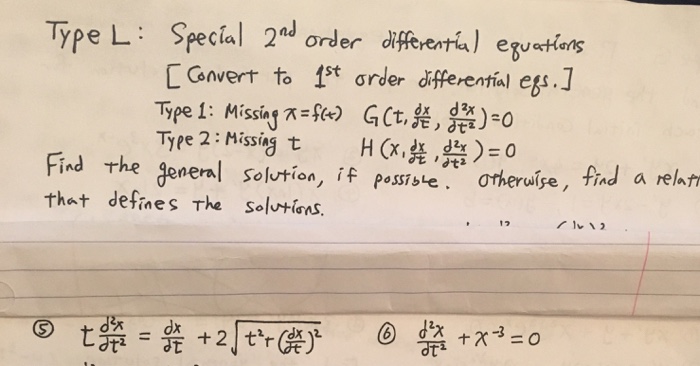 Type L: Special 2nd order differential equations
[Convert to 1st order differential eqs.]
Type 1: Missing x=f(t) G(t, dx/dt, d²x/dt²)=0
Type 2: Missing t H(x, dx/dt, d²x/dt²)=0
Find the general solution, if possible. Otherwise, find a relati
that defines the solutions.
⑤ t d²x/dt² = dx/dt + 2√(t²+(dx/dt)²) ⑥ d²x/dt² + x⁻³ = 0